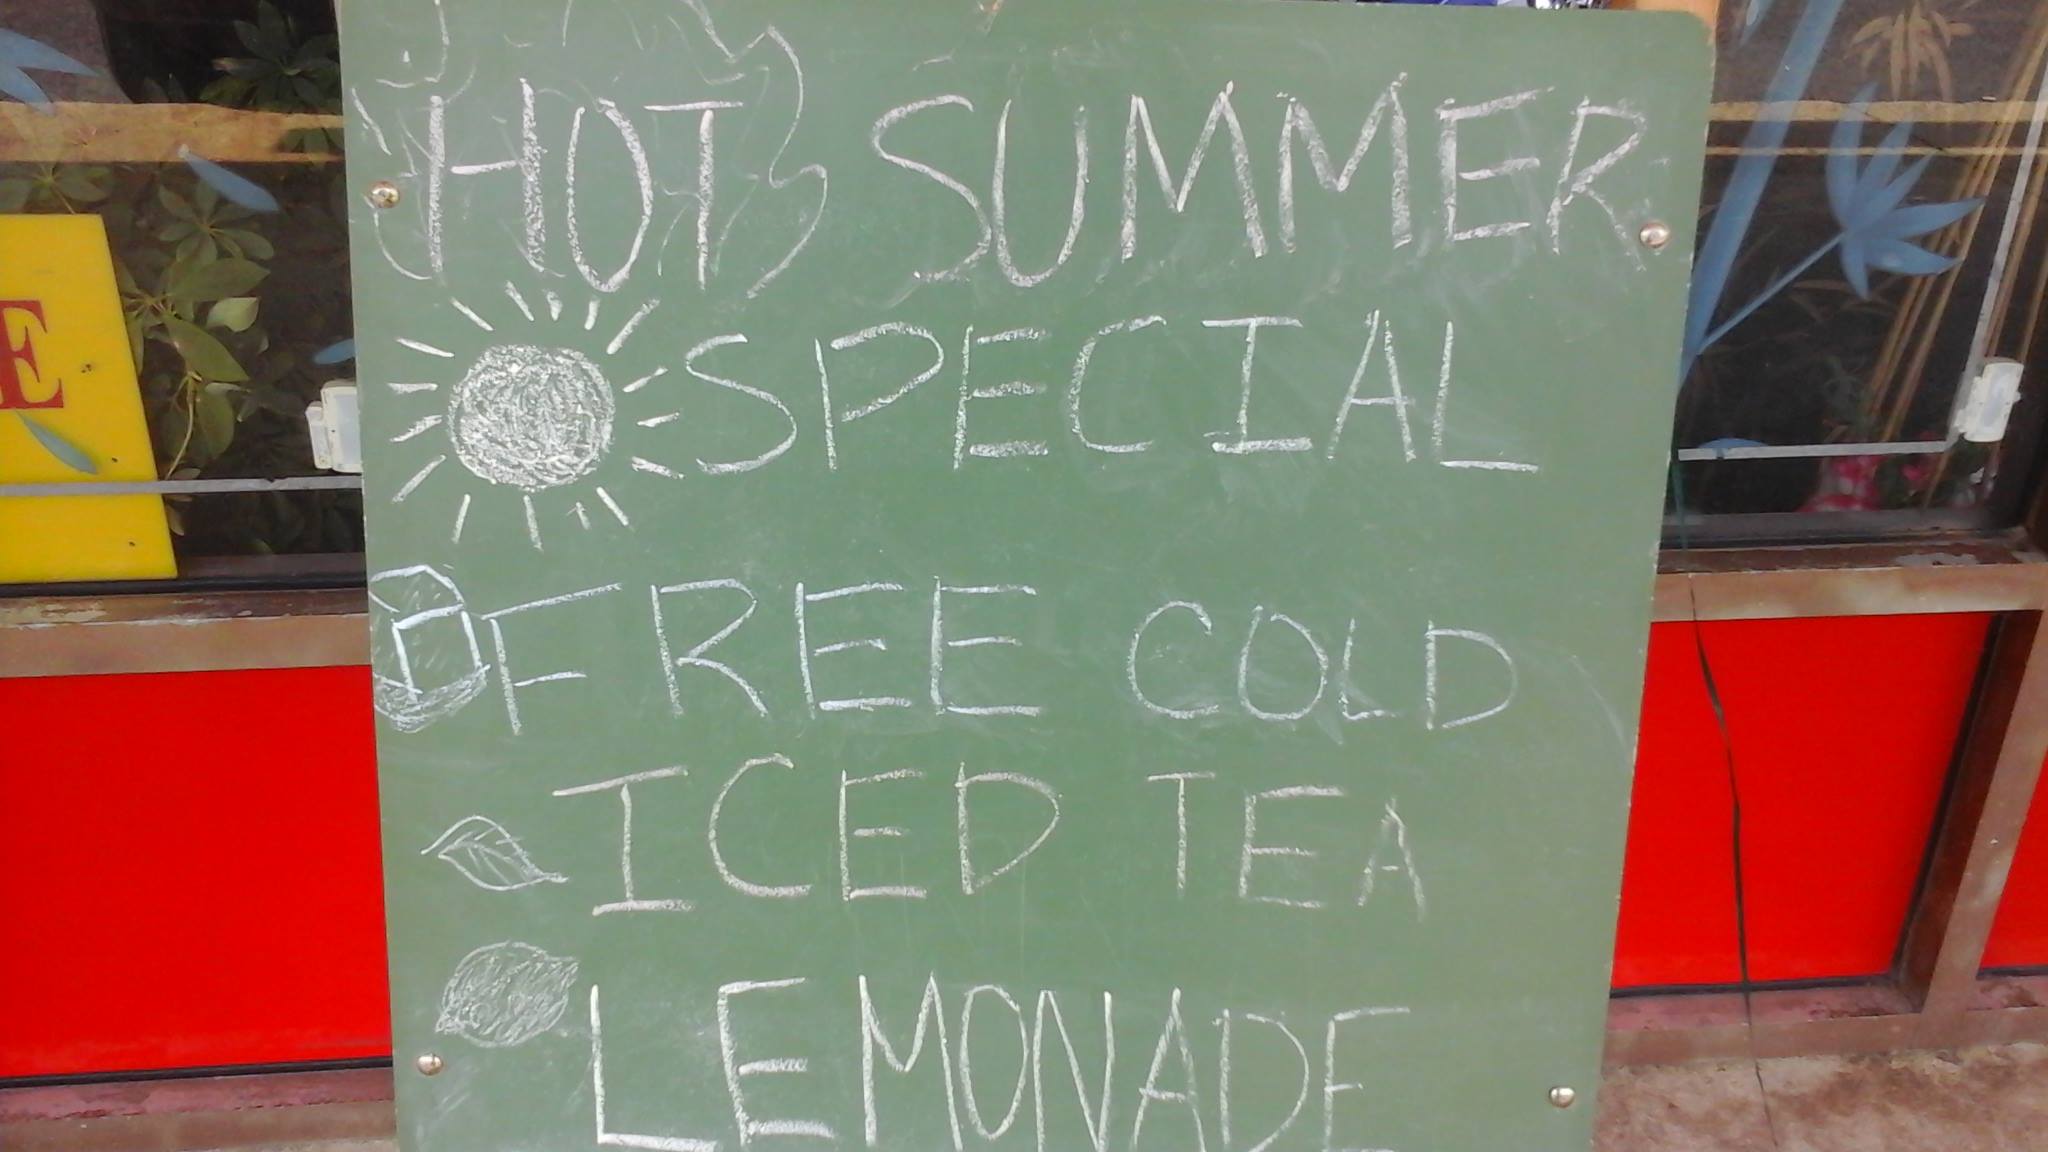 HOT SUMMER
SPECIAL
FREE COLD
ICED TEA
LEMONADE
E